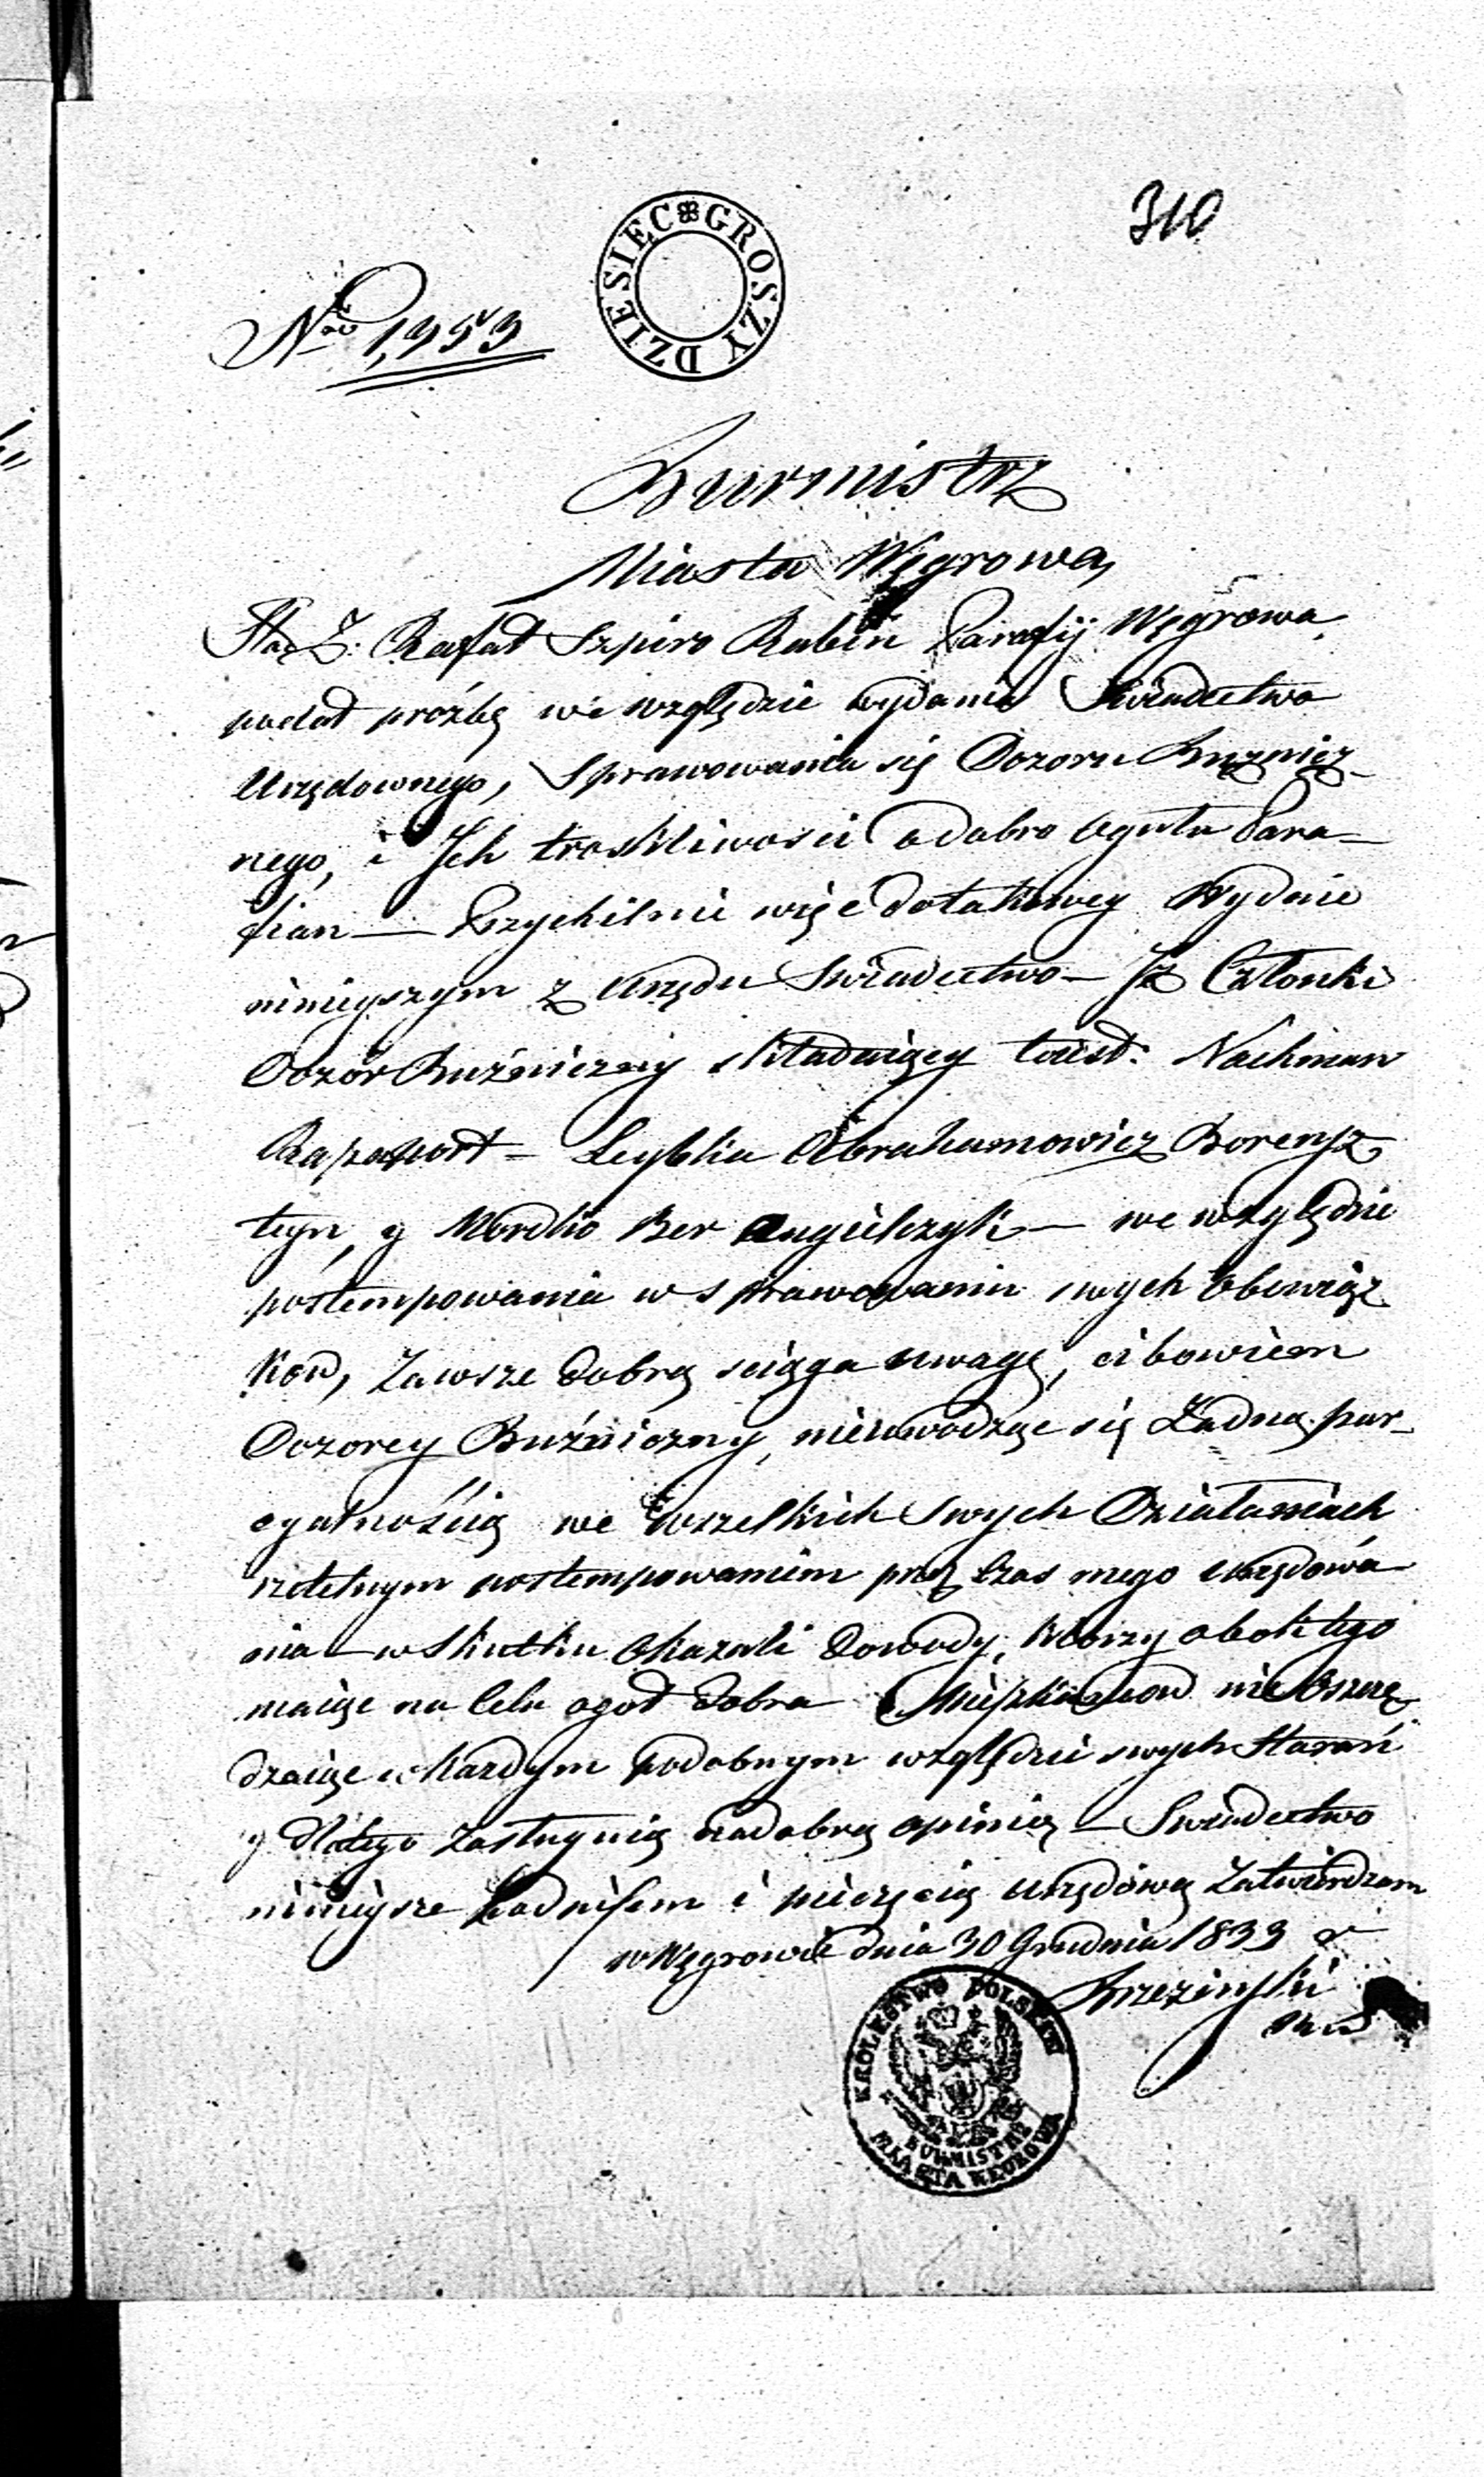 310
DZIESIEC GROSZY
Nro 1,953
Burmistrz
Miasta Węgrowa,
Rafał Szpiro Rabin Parafij Węgrowa
podał prożbę we względzie wydania Swiadectwa
Urzędownego, Sprawowania się Dozoru Buznicz-
nego, i Ich troskliwosci o dobro ogułu Para-
fian — Przychilnie więc do takowey Wydaie
ninieyszym z Urzędu Swiadectwo — Iż Członki
Dozór Buźniczny składaiący Nachman
Rapaport – Leybka Abrahamowicz Borensz
teyn, y Mordko Ber Angielczyk — we względzie
postempowania w sprawowaniu swych obowiąz
kow, Zawsze dobrą sciąga uwagę, ci bowiem
Dozorcy Buźniczny, nieuwodząc się Żadną par-
cyalnością we wszelkich swych Działaniach
rzetelnym postempowaniem przez Czas mego Urzędowa
nia – w Skutku Okazali Dowody, którzy obok tego
maiąc na Celu ogoł dobra Mieszkancow nie oszczę
dzaiąc w Kazdym podobnym względzie swych Starań
y dlatego zasługuią na dobrą opinią – Swiadectwo
ninieysze podpisem i pieczęcią Urzędową Zatwierdzam
w Węgrowie dnia 30 Grudnia 1833 r
Brzezinski
KROLESTWO POLSKIE
BURMISTRZ
MIASTA WĘGROWA